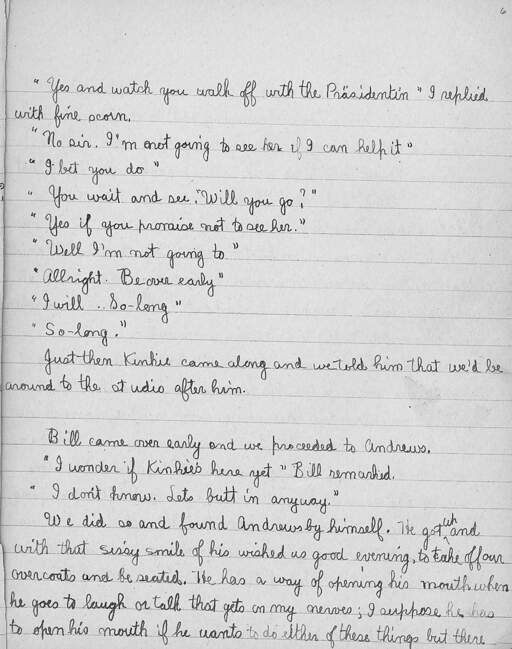 6
"Yes and watch you walk off with the Präsidentin" I replied
with fine scorn.
"No sir. I'm not going to see her if I can help it"
"I bet you do"
"You wait and see. Will you go?"
"Yes if you promise not to see her."
"Well I'm not going to"
"Allright. Be over early"
"I will .. So-long"
"So-long."
Just then Kinkie came along and we told him that we'd be
around to the studio after him.
Bill came over early and we proceeded to Andrews.
"I wonder if Kinkie's here yet" Bill remarked.
"I don't know. Lets butt in anyway."
We did so and found Andrews by himself. He got up and
with that sissy smile of his wished us good evening, to take off our
overcoats and be seated. He has a way of opening his mouth when
he goes to laugh or talk that gets on my nerves; I suppose he has
to open his mouth if he wants to do either of these things but there